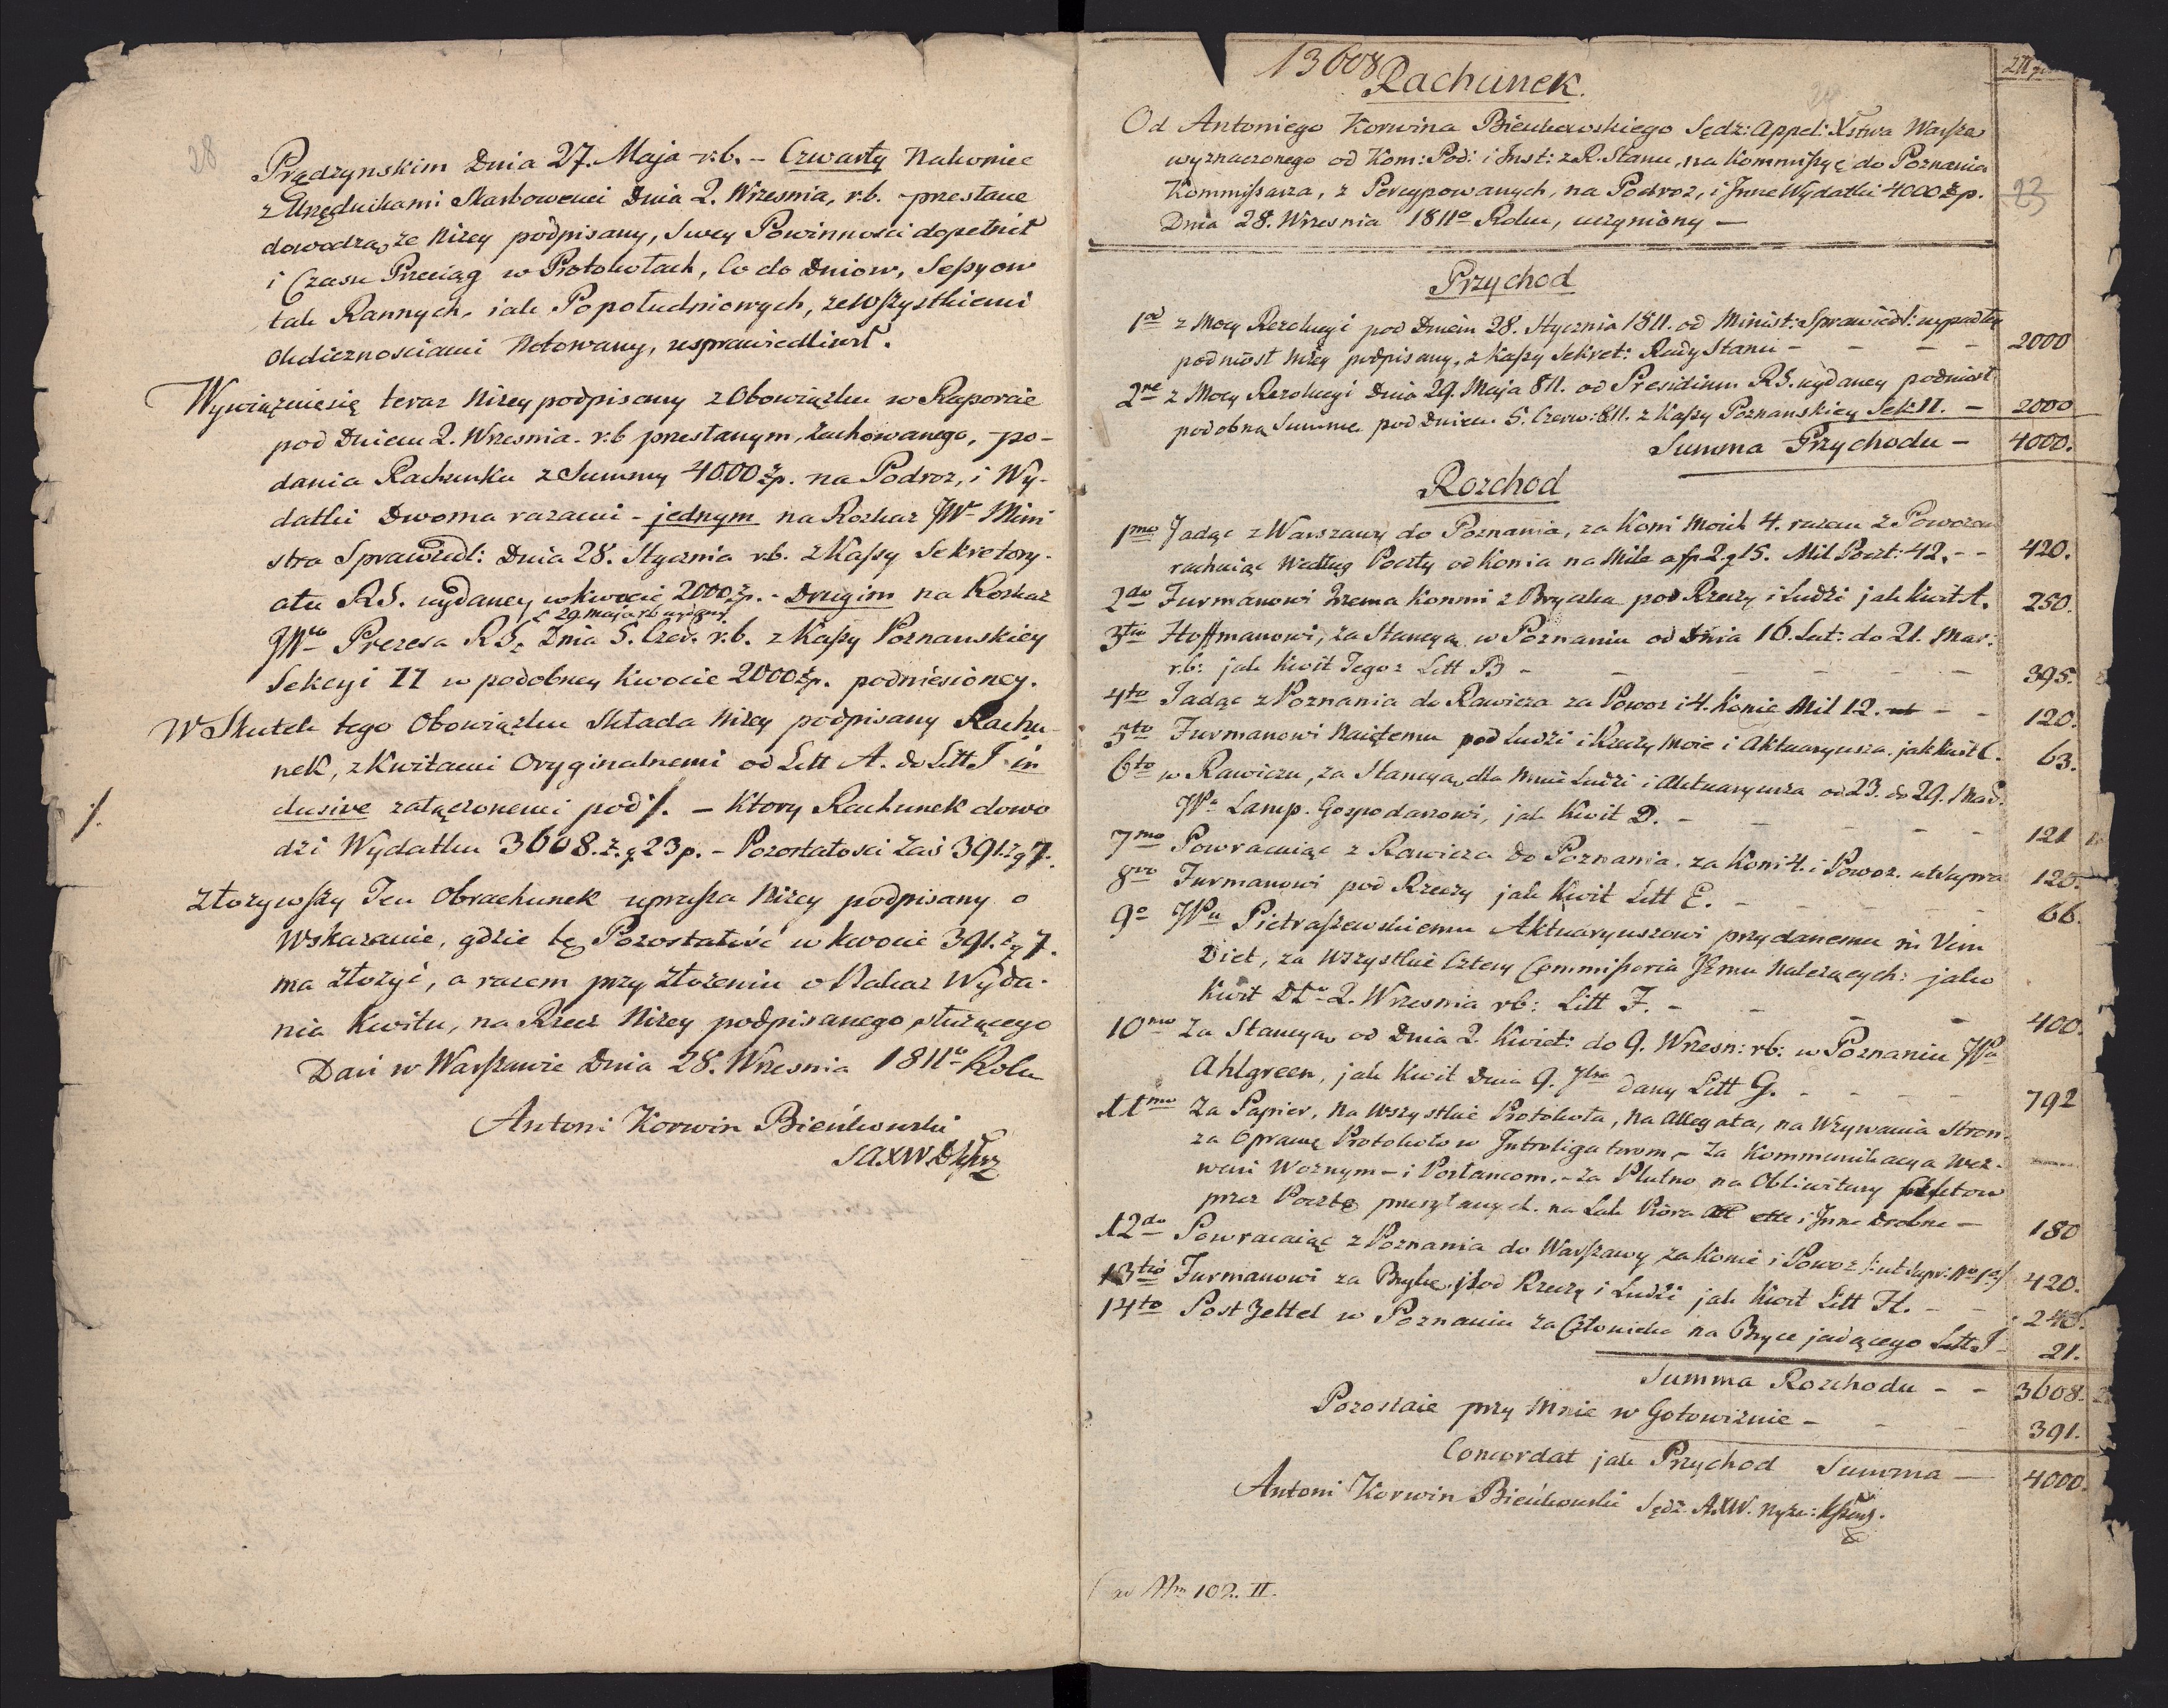 28
Prądzynskim Dnia 27. Maja r.b. – Czwarty nakoniec
z Urzędnikami Skarbowemi Dnia 2. Wrzesnia, r.b. przestane
dowodzą, że niżey podpisany, Swey Powinnosci dopełnił
i Czasu Przeciąg w Protokołach, Co do Dniow, Seſsyow
tak Rannych, iak Popołudniowych, ze wſzystkiemi
okolicznosciami Notowany, usprawiedliwił.
Wywiązuiesię teraz niżey podpisany z Obowiązku w Raporcie
pod Dniem 2. Wrzesnia. r.b przesłanym, zachowanego, – po-
dania Rachunku z Summy 4000 zp. na Podroz, i Wy-
datki Dwoma razami – jednym na Rozkaz JW Mini
stra Sprawiedl: Dnia 28. Stycznia r.b. z Kaſsy Sekretary-
atu RS. wydaney w kwocie 2000 zp. – Drugim na Rozkaz
d 29. Maja r.b wydany
JWo Prezesa RS, Dnia 5. Czer. r.b. z Kaſsy Poznanskiey
Sekcyi II w podobney Kwocie 2000 zp. podniesioney.
W Skutek tego Obowiązku Składa niżey podpisany Rachu-
nek, z Kwitami Oryginalnemi od Litt A. do Litt I in
clusive załączonemi pod ·/. – Ktory Rachunek dowo
·/.
dzi Wydatku 3608. z. g 23 p. – Pozostałosci zaś 391. z g 7.
Złożywſzy Ten Obrachunek upraſza niżey podpisany o
Wskazanie, gdzie tę Pozostałość w kwocie 391. z g 7.
ma złożyć, a razem przy złożeniu o Nakaz Wyda-
nia Kwitu, na Rzecz Niżey podpisanego służącego
Dan w Warſzawie Dnia 28. Wrzesnia 1811o Roku
Antoni Korwin Bieńkowski
SAXW
13608
Rachunek.
23
Od Antoniego Korwina Bieńkowskiego Sędz: Appel: Xstwa Warſza
wyznaczonego od Kom: Pod: i Inst: z R. Stanu, na Kommiſsyę do Poznania
Kommiſsarza, z Percypowanych, na Podroz, i Inne Wydatki 4000 zp.
Dnia 28. Wrzesnia 1811o Roku, uczyniony –
Przychod
1o z Mocy Rezolucyi pod Dniem 28. Stycznia 1811. od Minist: Sprawiedl: wypadłey
podniosł niżey podpisany, z Kaſsy Sekret: Rady Stanu – – – – 2000
2re z Mocy Rezolucyi Dnia 29. Maja 811. od Presidium RS. wydaney podniosł
podobną Summę pod Dniem. 5. Czerw: 811. z Kaſsy Poznanskiey Sek: II. – 2000
Summa Przychodu – 4000.
Rozchod
1mo Jadąc z Warszawy do Poznania, za Koni Moich 4. razem z Powozem
rachuiąc Według Poczty od Konia na Mile a fp 2. g 15. Mil Poczt: 42. – – 420.
2do Furmanowi trzema Konmi z Bryczka pod Rzeczy i Ludzi jak Kwit A. 250.
3tio Hoffmanowi, za Stancyą w Poznaniu od Dnia 16. Lut: do 21. Mar:
r.b: jak Kwit Tegoz Litt B – – – – – – 395.
4to Jadąc z Poznania do Rawicza za Powoz i 4. Konie Mil 12. – – 120.
5to Furmanowi Naiętemu pod Ludzi i Rzeczy Moie i Aktuaryusza. jak Kwit C. 63.
6to w Rawiczu, za Stancyą, dla Mnie Ludzi i Aktuaryusza od 23. do 29. Mar.
JPo Lamp. Gospodarzowi, jak Kwit D. – – – – – 121
7mo Powracaiąc z Rawicza do Poznania. za Koni 4. i Powoz. ut supra 120.
8vo Furmanowi pod Rzeczy jak Kwit Litt E. – – – – – 66.
9o JPu Pietraſzewskiemu Aktuaryuszowi przydanemu in Vim
Diet, za Wszystkie Cztery Commiſsoria Jemu Należących: jako
Kwit DDo 2. Wrzesnia rb: Litt F. – – – – 400.
10mo Za Stancyą, od Dnia 2. Kwiet: do 9. Wrzesn: rb: w Poznaniu JPu
Ahlgreen, jak Kwit Dnia 9. 7bra dany Litt G. – – – – – 792
11mo Za Papier, na Wszystkie Protokoła, na Allegata, na Wzywania Stron.
za Oprawę Protokołow Introligatorom – Za Kommunikacya Wez-
wań Woznym – i Posłancom. – Za Płutno, na Obliwitury
przez Pocztę przesyłanych. na Lak Pióra i Inne Drobne – 180
12do Powracaiąc z Poznania do Warſzawy za Konie i Powoz /: ut supr: No 1o :/ 420.
13tio Furmanowi za Brykę, pod Rzeczy i Ludzi jak Kwit Litt H. – – 240.
14to Post Zettel w Poznaniu za Człowieka na Bryce jadącego Litt I – 21.
Summa Rozchodu – – 3608.
Pozostaie przy Mnie w Gotowiznie – – – 391.
Concordat jak Przychod Summa – 4000.
Antoni Korwin Bieńkowski Sędz. AXW.
102. II.